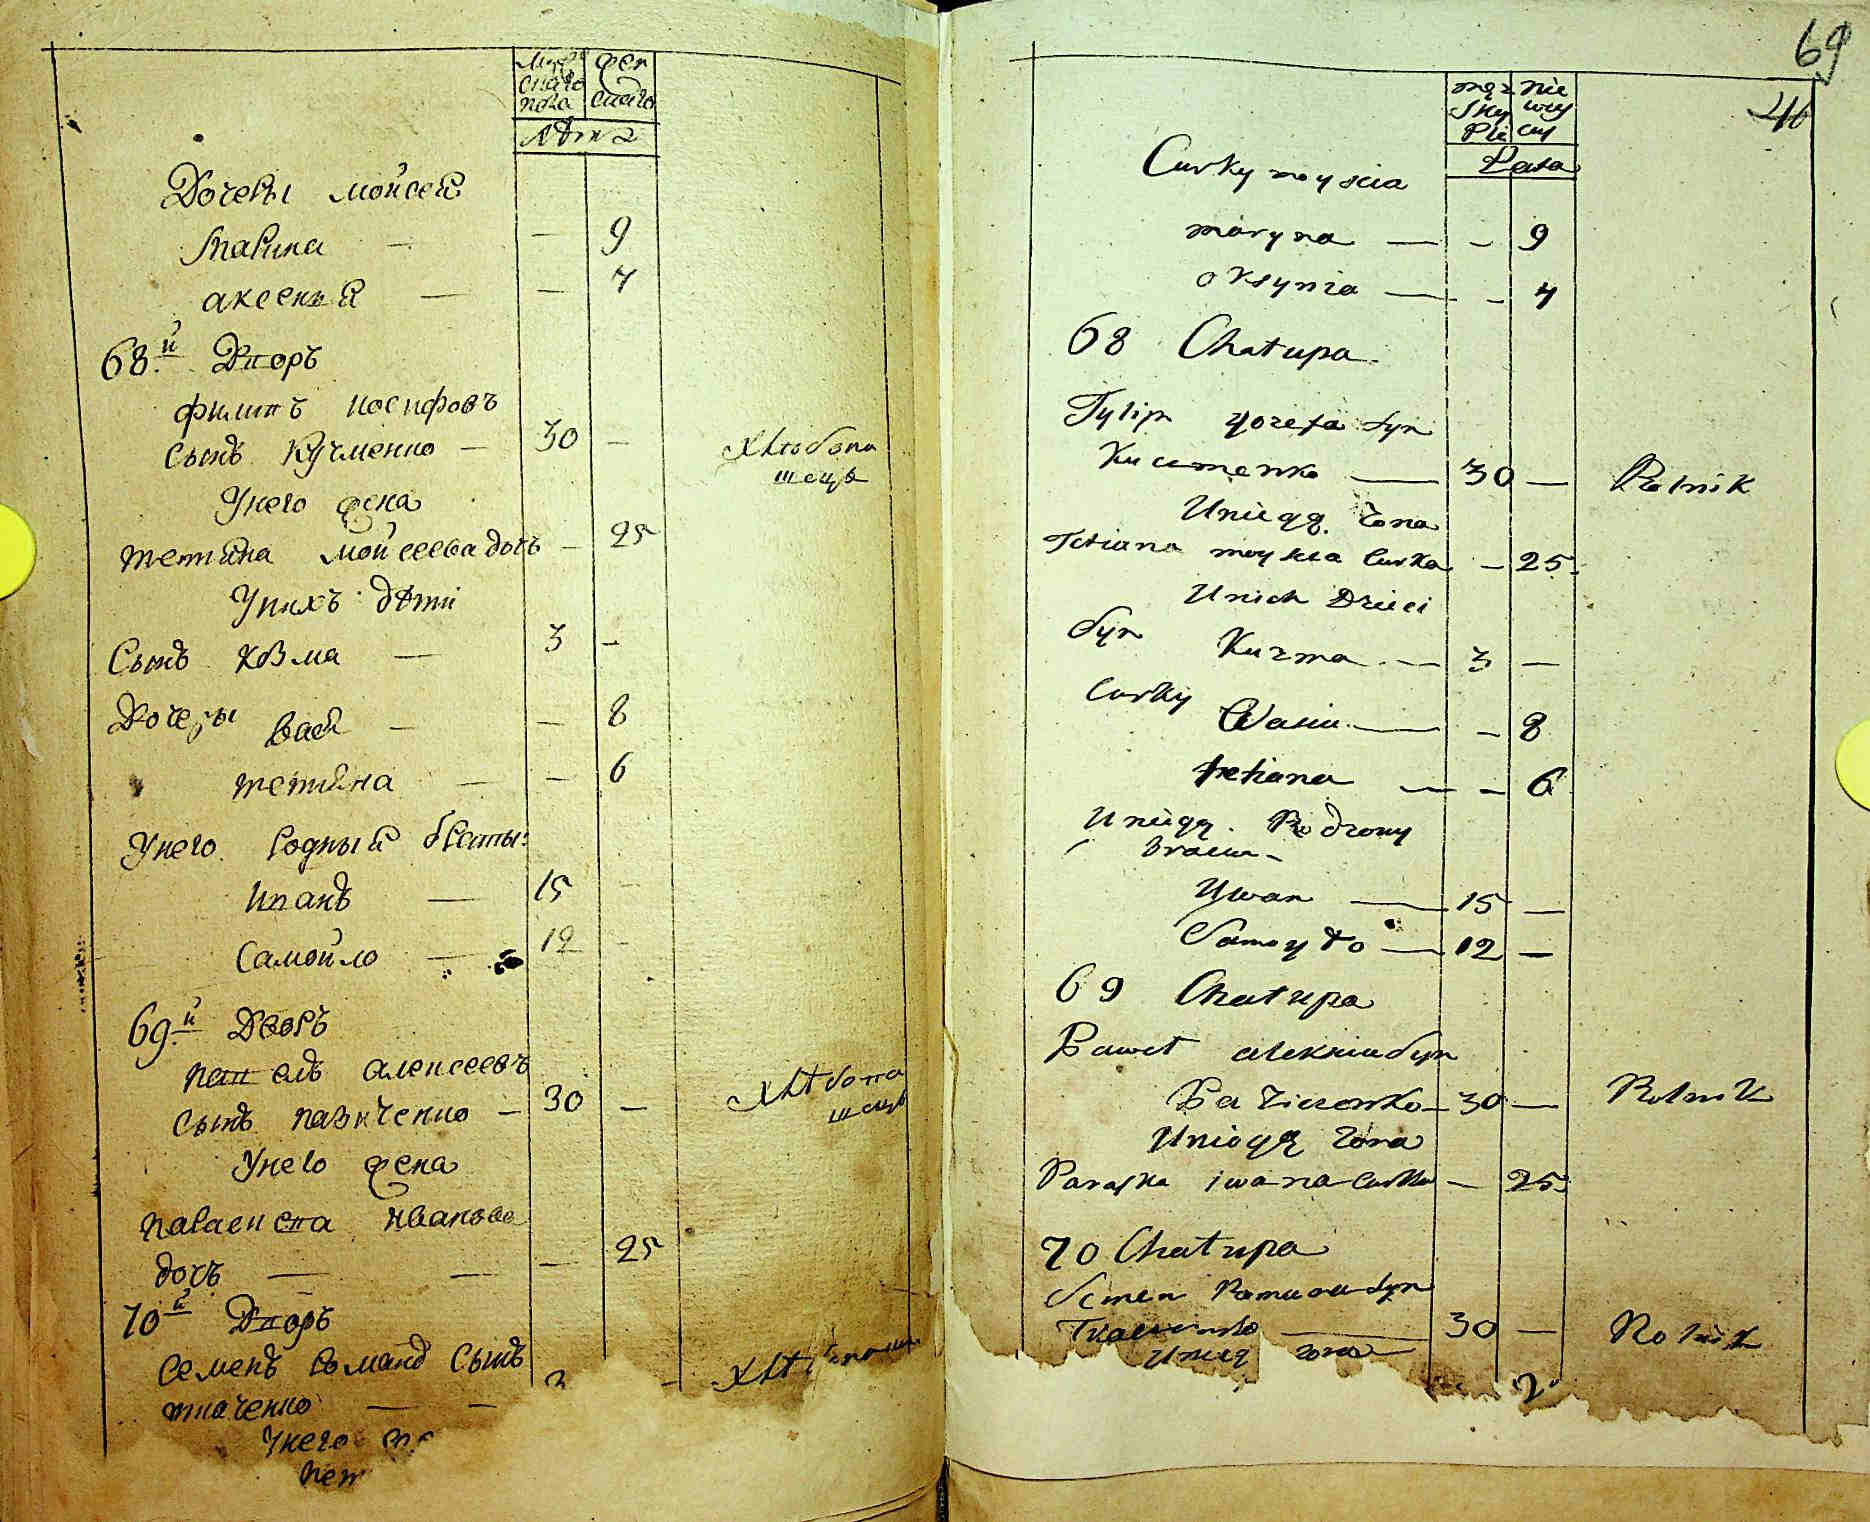 Мужескаго пола
Женскаго
Лѣта
Дочеры Мойсея
Марина — — 9
Аксенья — — 7
68.й Дворъ
Филипъ Иосифовъ
сынъ Кучменко — 30 —
Хлѣбопашецъ
У него жена
Тетяна Мойсеева дочъ — 25
У нихъ дѣти
Сынъ Козма — 3 —
Дочеры Вася — — 8
Тетяна — — 6
У него родныи браты:
Иванъ — 15 —
Самойло — 12 —
69.й Дворъ
Павелъ Алексеевъ
сынъ Пазиченко — 30 —
Хлѣбопашецъ
У него жена
Параскева Иванова
дочъ — — — 25
70й Дворъ
Семенъ Романа сынъ
Ткаченко — —
У него
69
46
męzskiey Płci
niewiesciey
Lata
Curky moysia
Maryna — — 9
Oksynia — — 7
68 Chatupa
Fylip Yozefa Syn
Kucumenko — 30 — Rolnik
Uniegą żona
Tetiana moysia Curka — 25.
Unich Dzieci
Syn Kuzma — 3 —
Curky Wasia — — 8
tetiana — — 6
Uniegą Rodzony
bracia —
Ywan — 15 —
Samoyło — 12 —
69 Chatupa
Paweł aleksiia Syn
Paziczenko — 30 — Rolnik
Uniegą żona
Paraska iwana Curka — 25.
70 Chatupa
Semen Romana Syn
Tkaczenko — 30 — Rolnik
Unieg żona